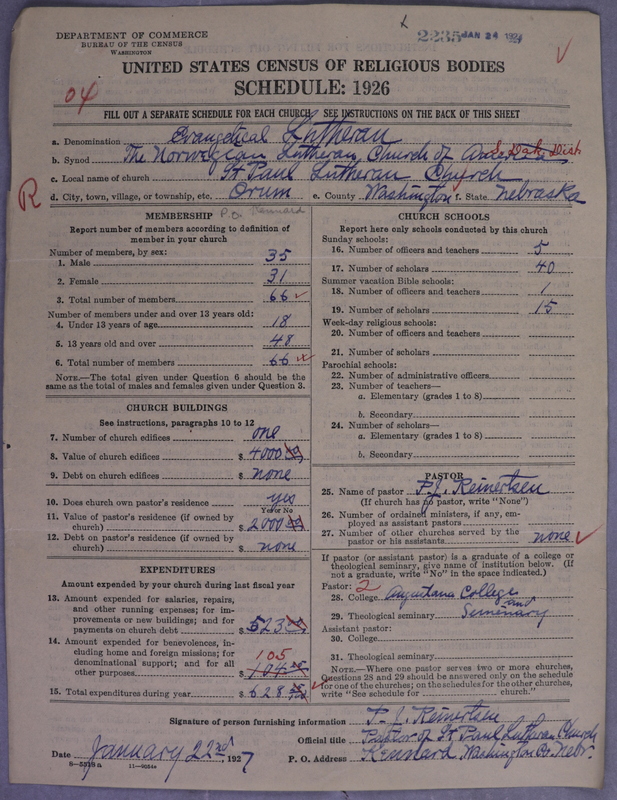 DEPARTMENT OF COMMERCE
BUREAU OF THE CENSUS
WASHINGTON
2235 JAN 24 1927
UNITED STATES CENSUS OF RELIGIOUS BODIES
SCHEDULE: 1926
04
FILL OUT A SEPARATE SCHEDULE FOR EACH CHURCH. SEE INSTRUCTIONS ON THE BACK OF THIS SHEET
a. Denomination Evangelical Lutheran
b. Synod The Norwegian Lutheran Church of America S. Dak. Dist.
c. Local name of church St Paul Lutheran Church
R
d. City, town, village, or township, etc. Orum e. County Washington f. State Nebraska
P.O. Kennard
MEMBERSHIP
Report number of members according to definition of
member in your church
Number of members, by sex:
1. Male 35
2. Female 31
3. Total number of members 66
Number of members under and over 13 years old:
4. Under 13 years of age 18
5. 13 years old and over 48
6. Total number of members 66
NOTE.—The total given under Question 6 should be the
same as the total of males and females given under Question 3.
CHURCH BUILDINGS
See instructions, paragraphs 10 to 12
7. Number of church edifices one
8. Value of church edifices $ 4000
9. Debt on church edifices $ none
10. Does church own pastor's residence yes
Yes or No
11. Value of pastor's residence (if owned by
church) $ 2000
12. Debt on pastor's residence (if owned by
church) $ none
EXPENDITURES
Amount expended by your church during last fiscal year
13. Amount expended for salaries, repairs,
and other running expenses; for im-
provements or new buildings; and for
payments on church debt $ 523
14. Amount expended for benevolences, in-
cluding home and foreign missions; for
denominational support; and for all
other purposes 105
$ 104
15. Total expenditures during year $ 628
CHURCH SCHOOLS
Report here only schools conducted by this church
Sunday schools:
16. Number of officers and teachers 5
17. Number of scholars 40
Summer vacation Bible schools:
18. Number of officers and teachers 1
19. Number of scholars 15
Week-day religious schools:
20. Number of officers and teachers
21. Number of scholars
Parochial schools:
22. Number of administrative officers
23. Number of teachers—
a. Elementary (grades 1 to 8)
b. Secondary
24. Number of scholars—
a. Elementary (grades 1 to 8)
b. Secondary
PASTOR
25. Name of pastor P. J. Reinertsen
(If church has no pastor, write "None")
26. Number of ordained ministers, if any, em-
ployed as assistant pastors
27. Number of other churches served by the
pastor or his assistants none
If pastor (or assistant pastor) is a graduate of a college or
theological seminary, give name of institution below. (If
not a graduate, write "No" in the space indicated.)
Pastor: 2
28. College Augustana College
and
29. Theological seminary Semenary
Assistant pastor:
30. College
31. Theological seminary
NOTE.—Where one pastor serves two or more churches,
Questions 28 and 29 should be answered only on the schedule
for one of the churches; on the schedules for the other churches,
write "See schedule for church."
Signature of person furnishing information P. J. Reinertsen
Official title Pastor of St Paul Lutheran Church
Date January 22nd 1927 P. O. Address Kennard, Washington Co. Nebr.